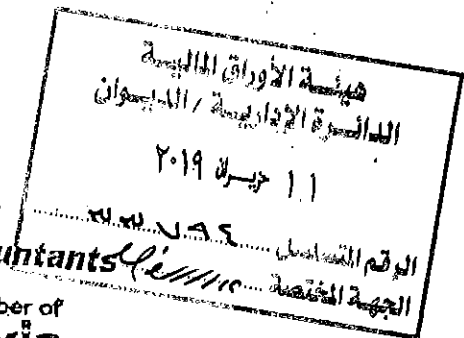 هيئة الأوراق المالية
الدائرة الإدارية / الديوان
١١ حزيران ٢٠١٩
الرقم المتسلسل
الجهة المختصة
untants
ber of